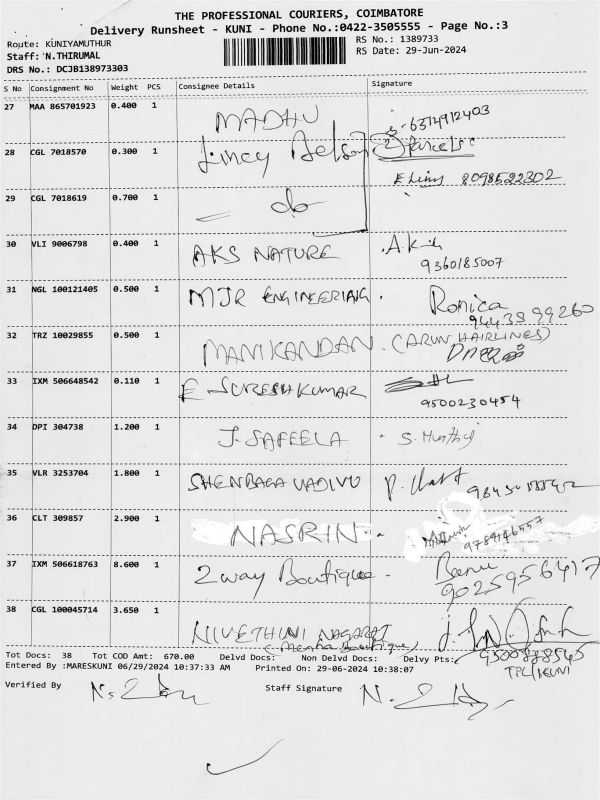 THE PROFESSIONAL COURIERS, COIMBATORE
Delivery Runsheet - KUNI - Phone No.:0422-3505555 - Page No.:3
Route: KUNIYAMUTHUR
RS No.: 1389733
Staff: N.THIRUMAL
RS Date: 29-Jun-2024
DRS No.: DCJB138973303
S No Consignment No Weight PCS Consignee Details Signature
27 MAA 865701923 0.400 1 MADHU 6374912403
28 CGL 7018570 0.300 1 8098522302
29 CGL 7018619 0.700 1 — do —
30 VLI 9006798 0.400 1 AKS NATURE
9360185007
31 NGL 100121405 0.500 1 MJR ENGINEERIANG. Ronica
9443899260
32 TRZ 10029855 0.500 1 MANIKANDAN. (ARUN HAIRLINES)
33 IXM 506648542 0.110 1 E SURESH KUMAR
9500230454
34 DPI 304738 1.200 1 J. SAFEELA
35 VLR 3253704 1.800 1 SHENBAGA VADIVU
36 CLT 309857 2.900 1 NASRIN
9789146557
37 IXM 506618763 8.600 1 2 way Boutique - Banu
9025956417
38 CGL 100045714 3.650 1 NIVETHUNI NAGARAJ
Tot Docs: 38 Tot COD Amt: 670.00 Delvd Docs: Non Delvd Docs: Delvy Pts:
9500888545
Entered By :MARESKUNI 06/29/2024 10:37:33 AM Printed On: 29-06-2024 10:38:07
TPC/KUNI
Verified By Staff Signature